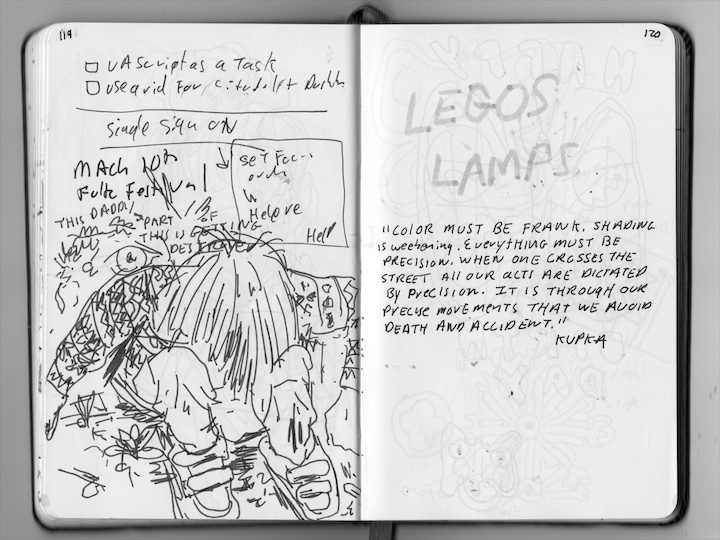 119
UAScript as a Task
Use grid For
single sign on
MACh 10th
Folk Festival
SET Focus
THIS DADDY PART OF
THIS IS GETTING
DESTROYED
Help
120
LEGOS
LAMPS
"COLOR MUST BE FRANK. SHADING
is weakening. Everything MUST BE
PRECISION. WHEN ONE CROSSES THE
STREET All OUR ACTS ARE DICTATED
BY PRECISION. IT IS THROUGH OUR
PRECISE MOVEMENTS THAT WE AVOID
DEATH AND ACCIDENT."
KUPKA